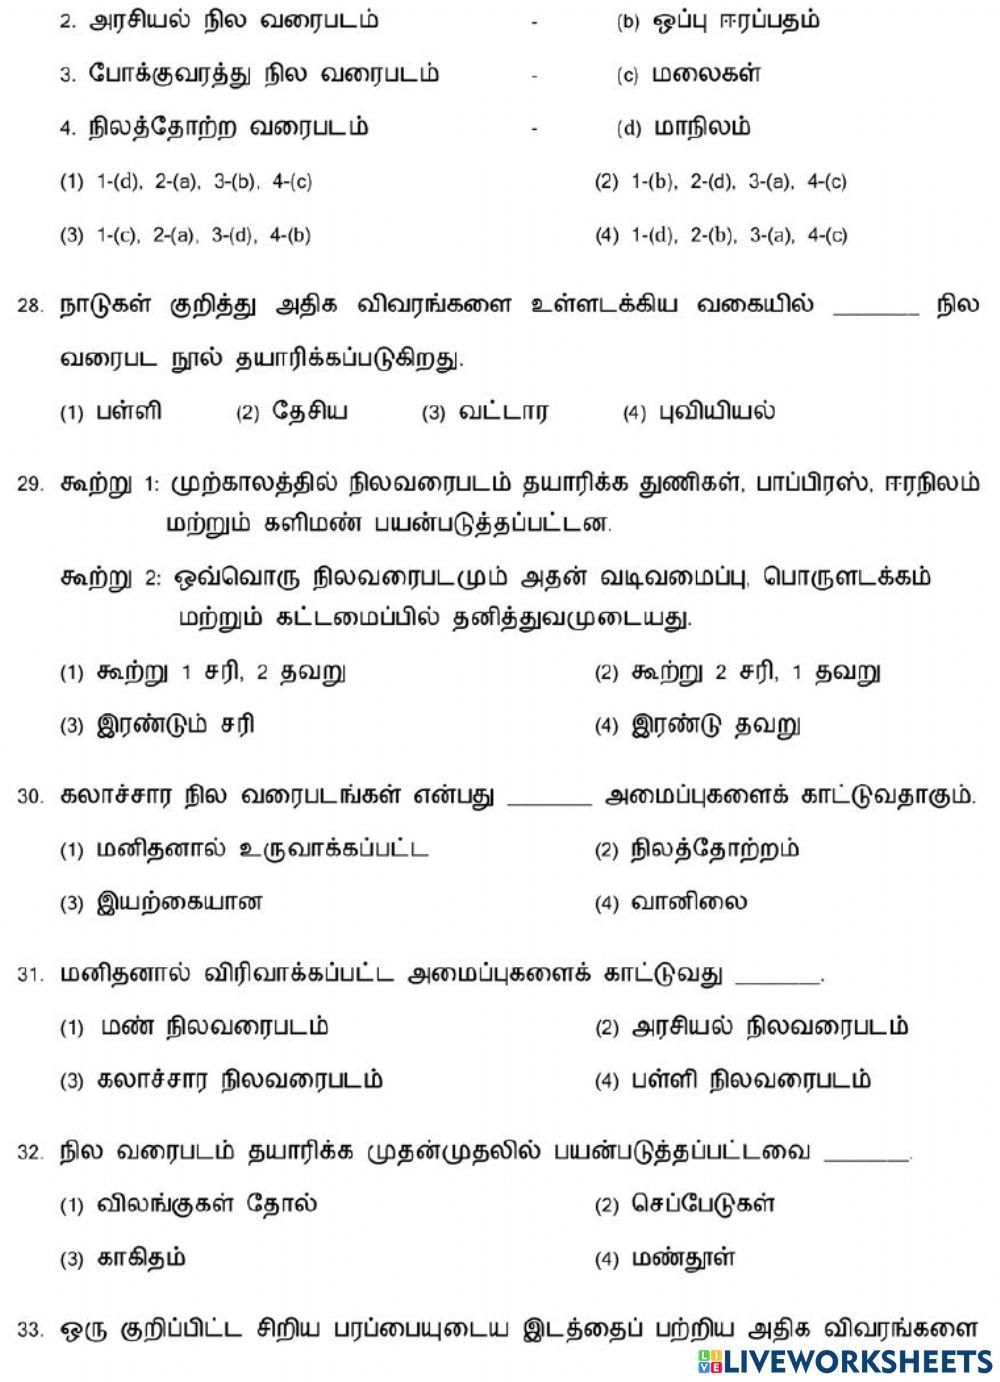 2. அரசியல் நில வரைபடம் - (b) ஒப்பு ஈரப்பதம்
3. போக்குவரத்து நில வரைபடம் - (c) மலைகள்
4. நிலத்தோற்ற வரைபடம் - (d) மாநிலம்
(1) 1-(d), 2-(a), 3-(b), 4-(c) (2) 1-(b), 2-(d), 3-(a), 4-(c)
(3) 1-(c), 2-(a), 3-(d), 4-(b) (4) 1-(d), 2-(b), 3-(a), 4-(c)
28. நாடுகள் குறித்து அதிக விவரங்களை உள்ளடக்கிய வகையில் _______ நில
வரைபட நூல் தயாரிக்கப்படுகிறது.
(1) பள்ளி (2) தேசிய (3) வட்டார (4) புவியியல்
29. கூற்று 1: முற்காலத்தில் நிலவரைபடம் தயாரிக்க துணிகள், பாப்பிரஸ், ஈரநிலம்
மற்றும் களிமண் பயன்படுத்தப்பட்டன.
கூற்று 2: ஒவ்வொரு நிலவரைபடமும் அதன் வடிவமைப்பு, பொருளடக்கம்
மற்றும் கட்டமைப்பில் தனித்துவமுடையது.
(1) கூற்று 1 சரி, 2 தவறு (2) கூற்று 2 சரி, 1 தவறு
(3) இரண்டும் சரி (4) இரண்டு தவறு
30. கலாச்சார நில வரைபடங்கள் என்பது _______ அமைப்புகளைக் காட்டுவதாகும்.
(1) மனிதனால் உருவாக்கப்பட்ட (2) நிலத்தோற்றம்
(3) இயற்கையான (4) வானிலை
31. மனிதனால் விரிவாக்கப்பட்ட அமைப்புகளைக் காட்டுவது _______.
(1) மண் நிலவரைபடம் (2) அரசியல் நிலவரைபடம்
(3) கலாச்சார நிலவரைபடம் (4) பள்ளி நிலவரைபடம்
32. நில வரைபடம் தயாரிக்க முதன்முதலில் பயன்படுத்தப்பட்டவை _______.
(1) விலங்குகள் தோல் (2) செப்பேடுகள்
(3) காகிதம் (4) மண்தூள்
33. ஒரு குறிப்பிட்ட சிறிய பரப்பையுடைய இடத்தைப் பற்றிய அதிக விவரங்களை
LIVE LIVEWORKSHEETS